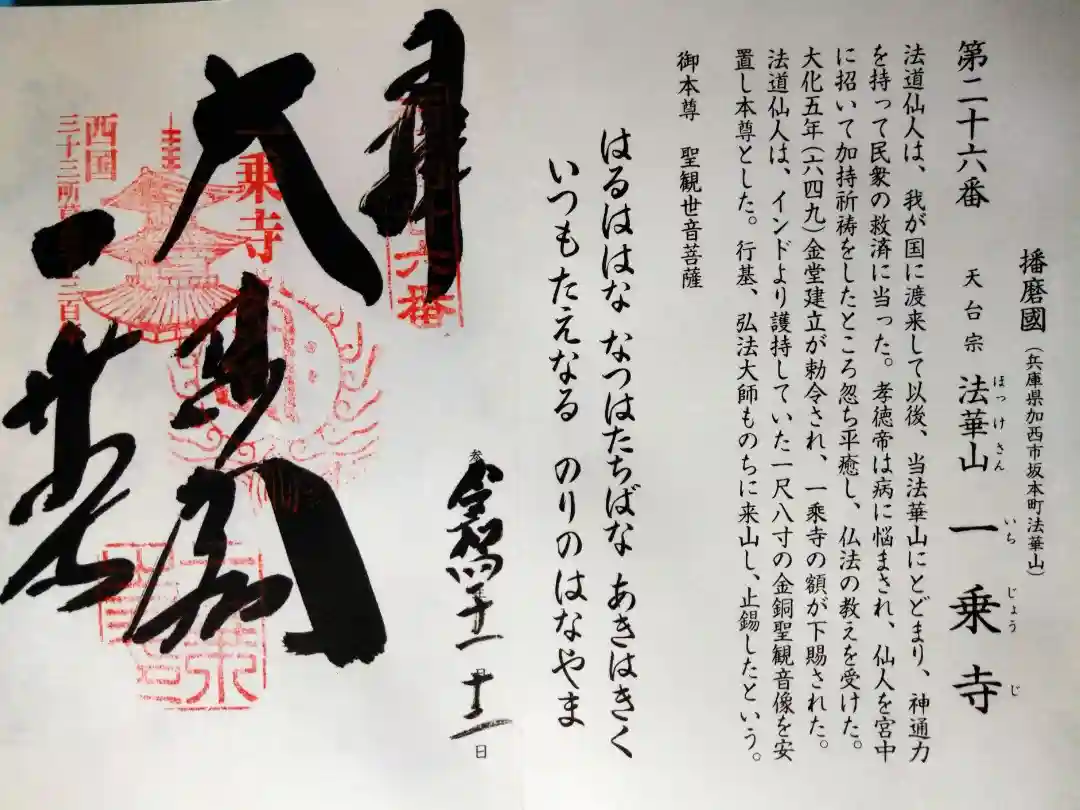 播磨國(兵庫県加西市坂本町法華山)
第二十六番 天台宗 法華山 一乗寺
ほっけさん いちじょうじ
法道仙人は、我が国に渡来して以後、当法華山にとどまり、神通力
を持って民衆の救済に当った。孝徳帝は病に悩まされ、仙人を宮中
に招いて加持祈祷をしたところ忽ち平癒し、仏法の教えを受けた。
大化五年(六四九)金堂建立が勅令され、一乗寺の額が下賜された。
法道仙人は、インドより護持していた一尺八寸の金銅聖観音像を安
置し本尊とした。行基、弘法大師ものちに来山し、止錫したという。
御本尊 聖観世音菩薩
はるははな なつはたちばな あきはきく
いつもたえなる のりのはなやま
令和四年十一月十二日
六番
大悲閣
一乗寺
一乗寺
西国
三十三所草創千三百年